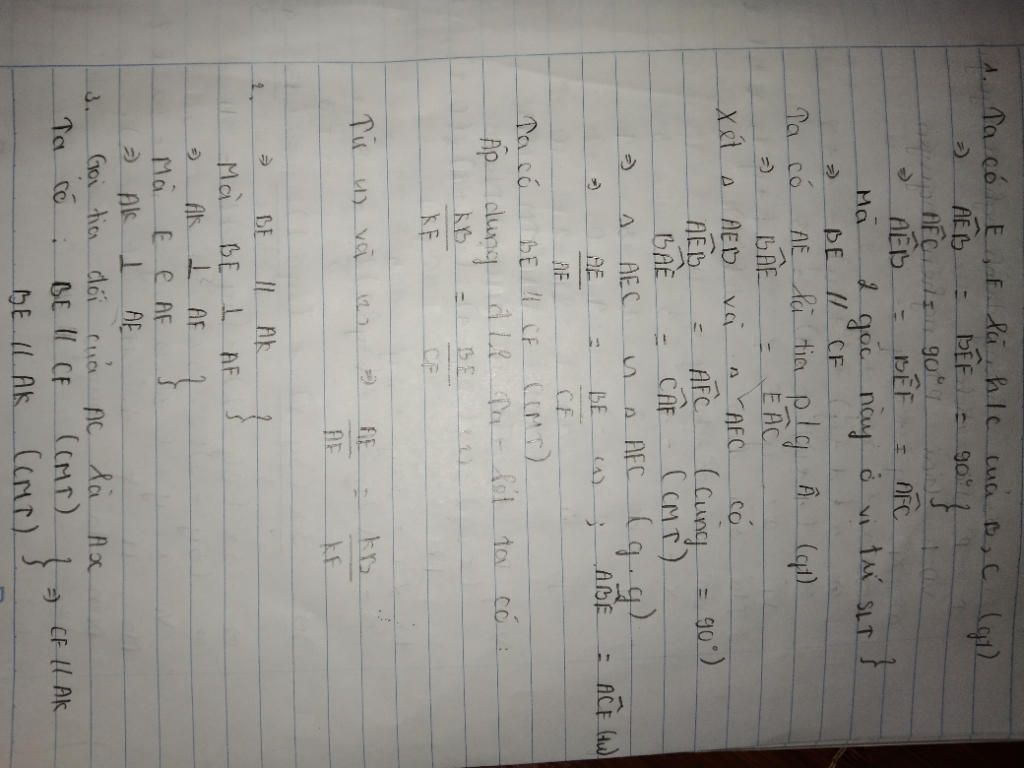 1. Ta có E, F là h/c của B, C (gt)
⇒ AÊB = BÊF = 90° }
AF̂C = 90°
⇒ AÊB = BÊF = AF̂C
Mà 2 góc này ở vị trí SLT }
⇒ BE // CF
Ta có AE là tia p/g Â (gt)
⇒ BÂE = EÂC
Xét Δ AEB và Δ AFC có
AÊB = AF̂C (cùng = 90°)
BÂE = CÂF (CMT)
⇒ Δ AEC ∽ Δ AFC (g.g)
⇒ AE/AF = BE/CF (1) ; AB̂E = AĈF (tư)
Ta có BE // CF (CMT)
Áp dụng đ/l Ta-lét ta có :
KB/KF = BE/CF
Từ (1) và (2) ⇒ AE/AF = KB/KF
2. ⇒ BE // AK }
Mà BE ⊥ AF
⇒ AK ⊥ AF }
Mà E ∈ AF
⇒ AK ⊥ AE
3. Gọi tia đối của AC là Ax
Ta có : BE // CF (CMT) } ⇒ CF // AK
BE // AK (CMT)